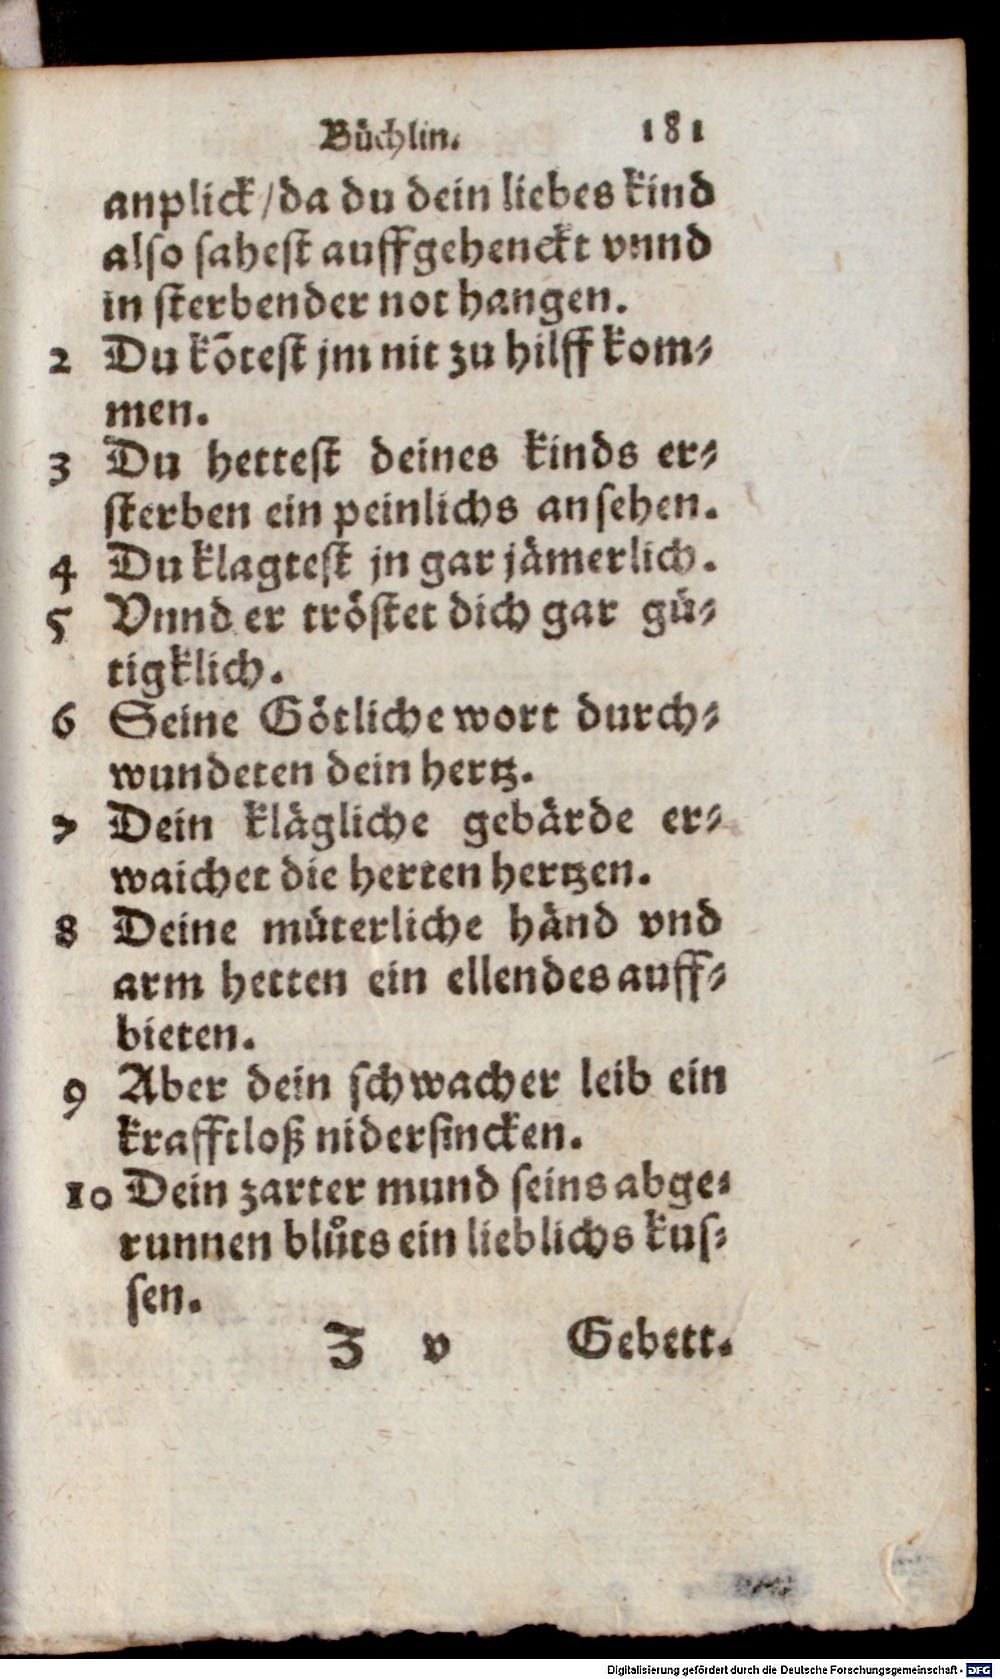 Büchlin. 181
anplick / da du dein liebes kind
also sahest auffgehenckt vnnd
in sterbender not hangen.
2 Du kõtest jm nit zu hilff kom-
men.
3 Du hettest deines kinds er-
sterben ein peinlichs ansehen.
4 Du klagtest jn gar jämerlich.
5 Vnnd er tröstet dich gar gü-
tigklich.
6 Seine Götliche wort durch-
wundeten dein hertz.
7 Dein klägliche gebärde er-
waichet die herten hertzen.
8 Deine müterliche händ vnd
arm hetten ein ellendes auff-
bieten.
9 Aber dein schwacher leib ein
krafftloß nidersincken.
10 Dein zarter mund seins abge-
runnen blůts ein lieblichs kus-
sen.
Z v Gebett.
Digitalisierung gefördert durch die Deutsche Forschungsgemeinschaft - DFG